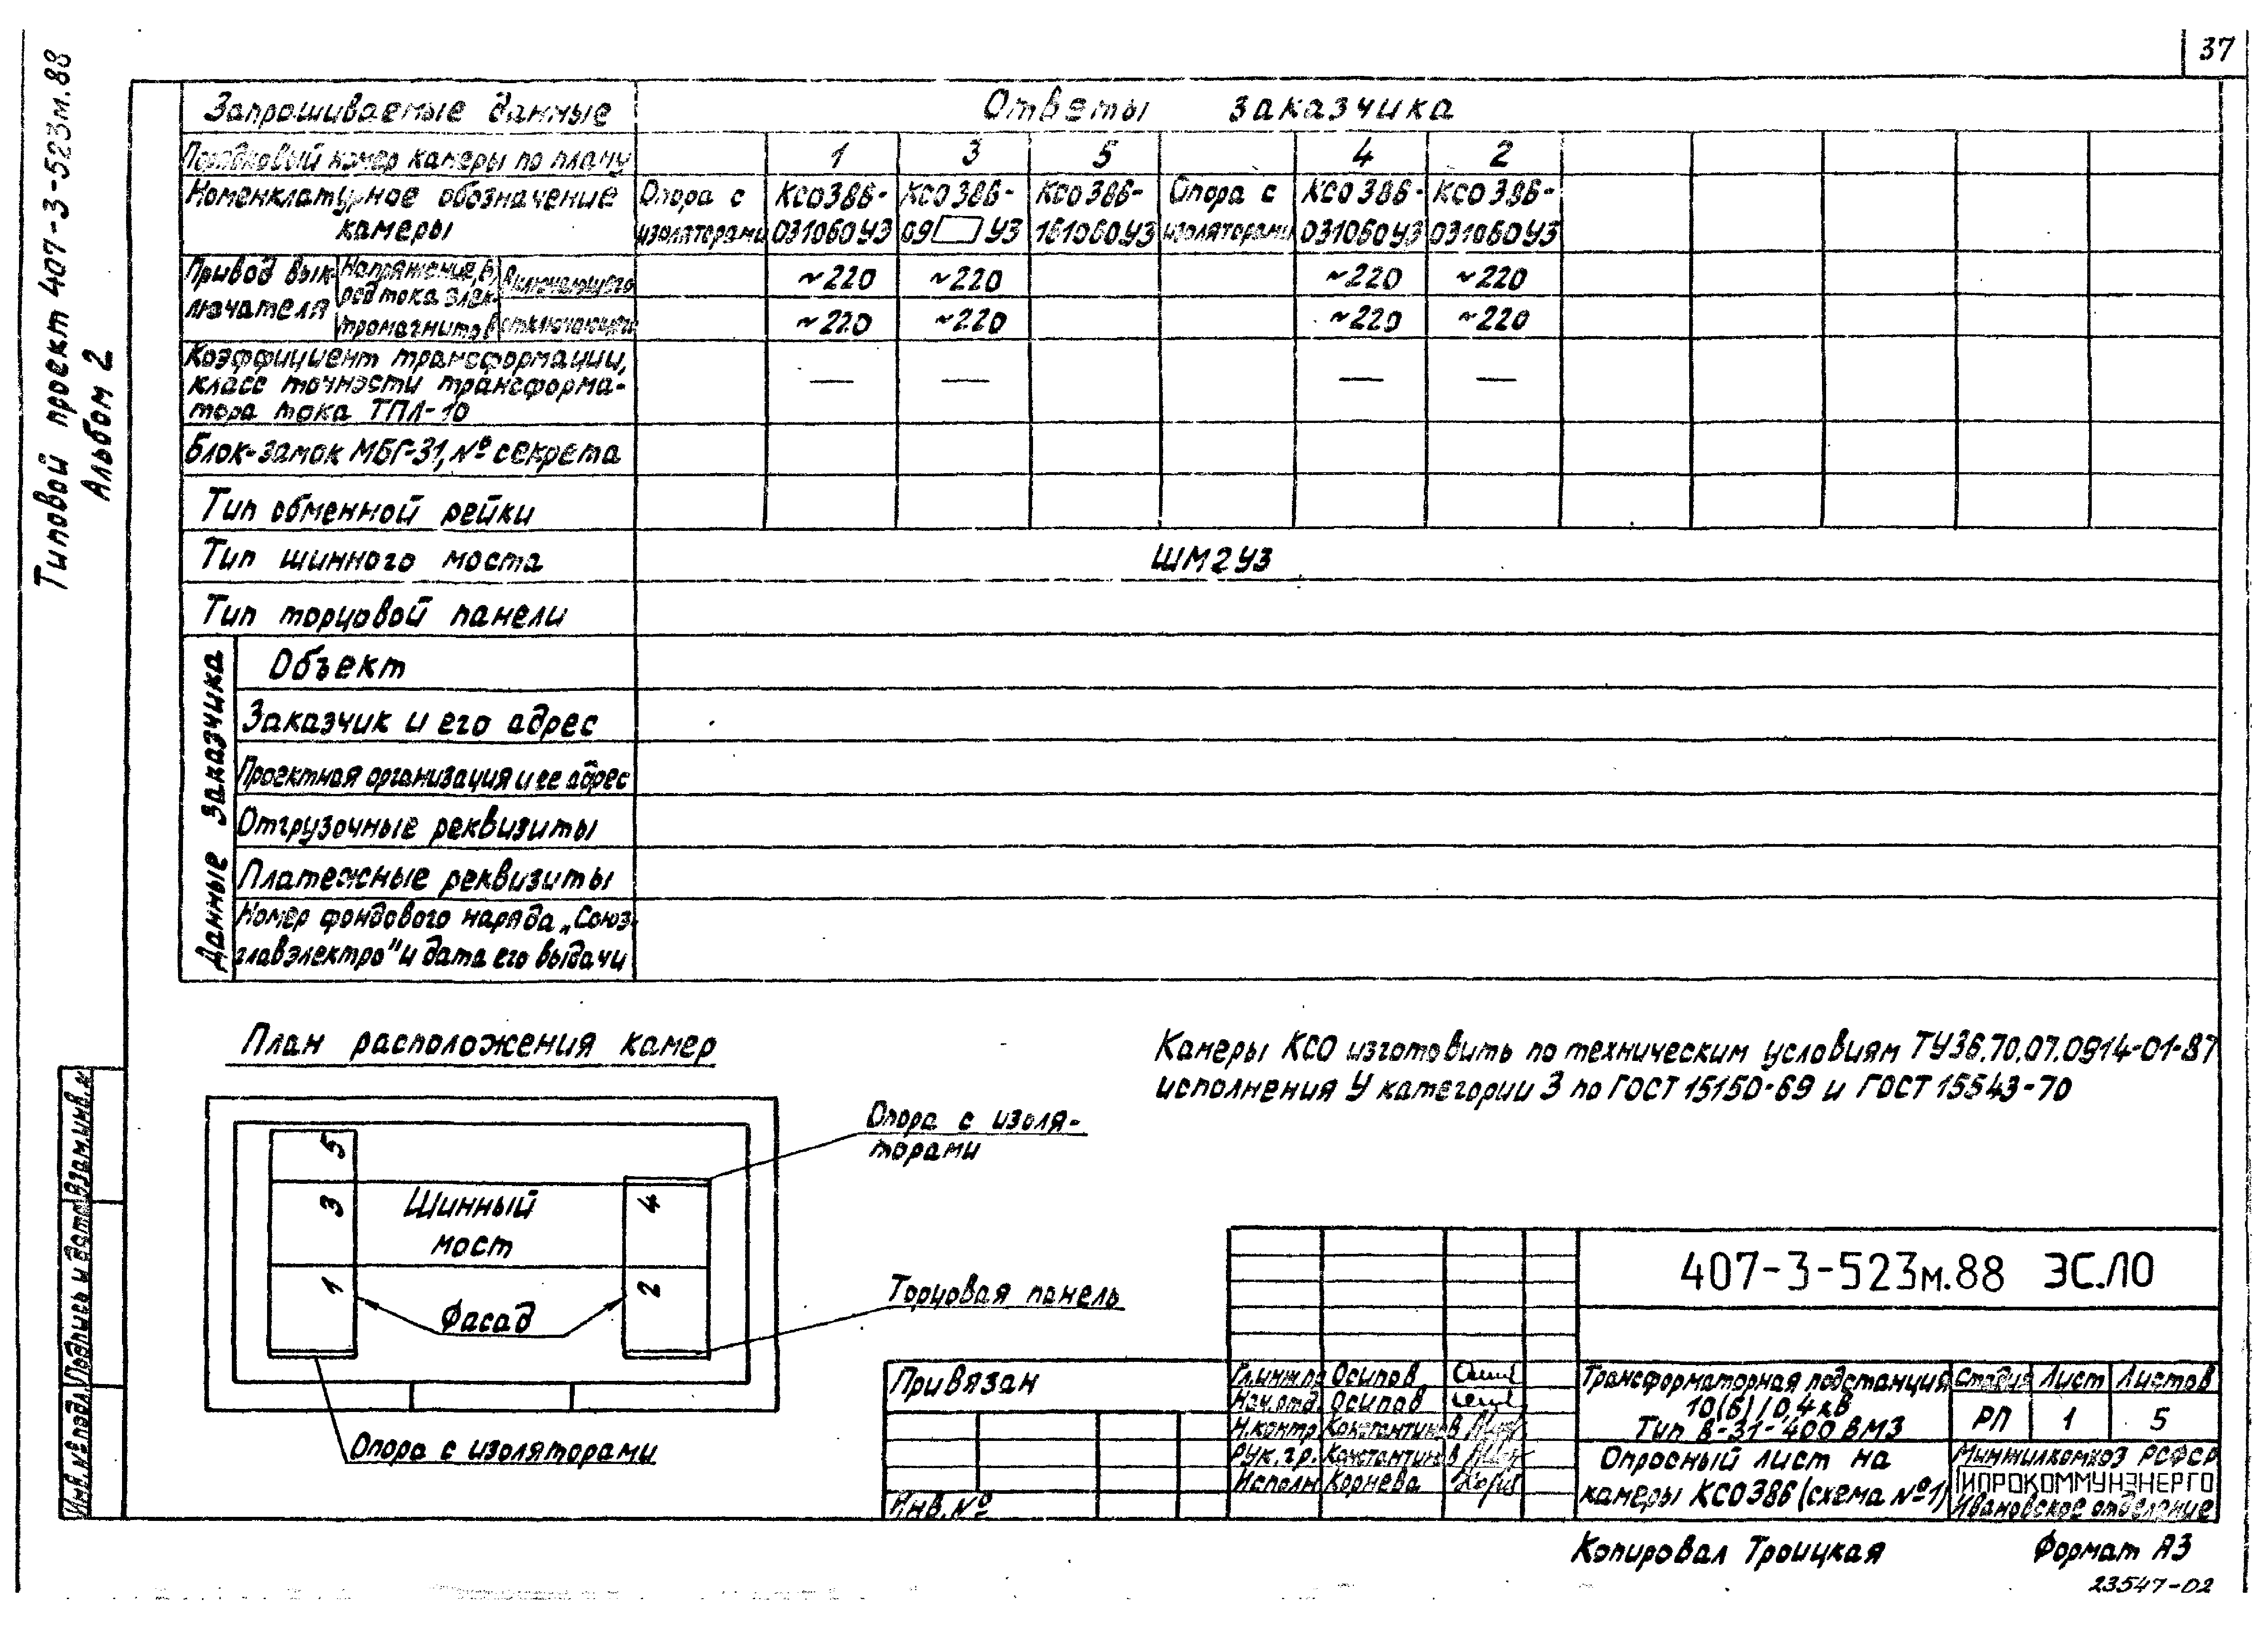 37
Типовой проект 407-3-523м.88
Альбом 2
Запрашиваемые данные
Ответы заказчика
Порядковый номер камеры по плану
1 3 5 4 2
Номенклатурное обозначение
камеры
Опора с
изоляторами
КСО386-
031060У3
КСО386-
09 У3
КСО386-
161060У3
Опора с
изоляторами
КСО386-
031060У3
КСО386-
031060У3
Привод вык
лючателя
Напряжение, В,
род тока элек-
тромагнитов
включающего
~220 ~220 ~220 ~220
отключающего
~220 ~220 ~220 ~220
Коэффициент трансформации,
класс точности трансформа-
тора тока ТПЛ-10
— — — —
Блок-замок МБГ-31, № секрета
Тип обменной рейки
Тип шинного моста
ШМ2У3
Тип торцовой панели
Данные заказчика
Объект
Заказчик и его адрес
Проектная организация и ее адрес
Отгрузочные реквизиты
Платежные реквизиты
Номер фондового наряда „Союз-
главэлектро" и дата его выдачи
План расположения камер
5
3
1
4
2
Шинный
мост
Фасад
Опора с изоля-
торами
Торцовая панель
Опора с изоляторами
Камеры КСО изготовить по техническим условиям ТУ36.70.07.0914-01-87
исполнения У категории 3 по ГОСТ 15150-69 и ГОСТ 15543-70
Инв.№ подл.
Подпись и дата
Взам.инв.№
Привязан
Инв.№
407-3-523м.88 ЭС.ЛО
Гл.инж.пр. Осипов
Нач.отд. Осипов
Н.контр. Константинов
Рук.гр. Константинов
Исполн. Корнева
Трансформаторная подстанция
10(6)/0,4кВ
Тип В-31-400 ВМ3
Стадия Лист Листов
РП 1 5
Опросный лист на
камеры КСО386 (схема №1)
Минжилкомхоз РСФСР
ГИПРОКОММУНЭНЕРГО
Ивановское отделение
Копировал Троицкая
Формат А3
23547-02